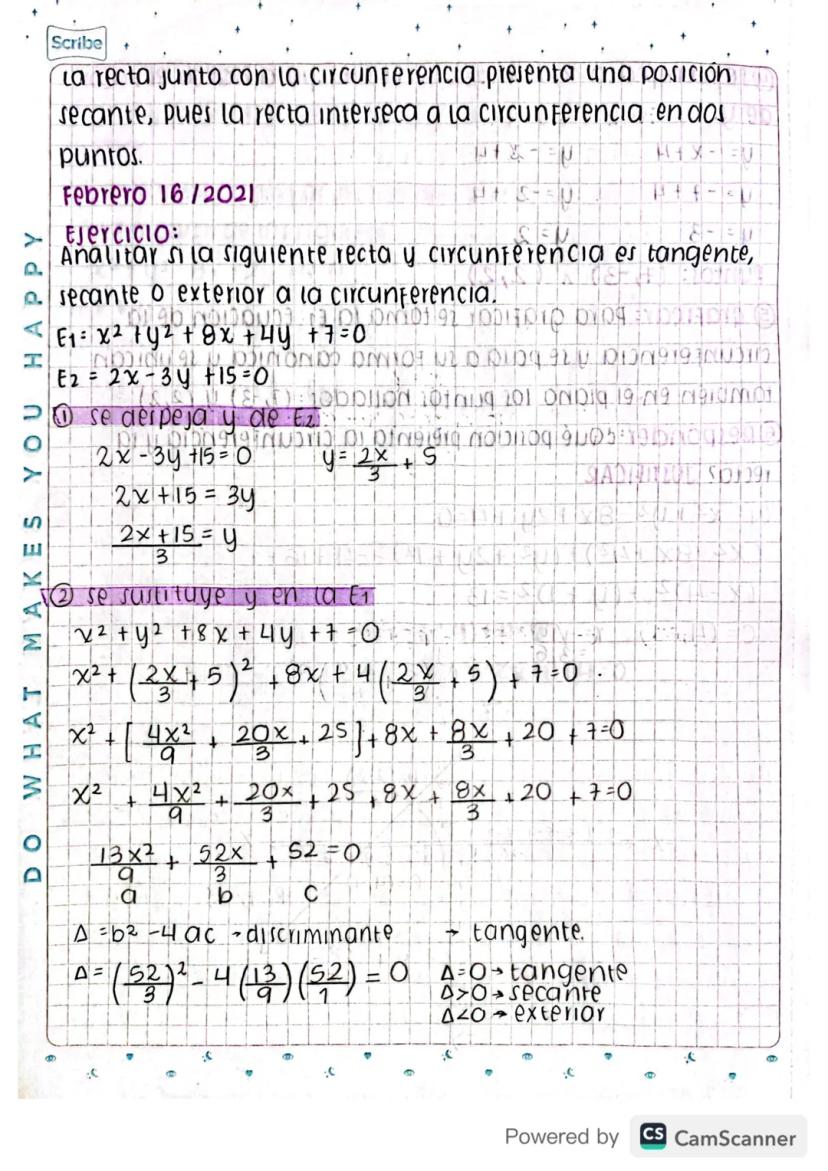 Scribe
La recta junto con la circunferencia presenta una posición
secante, pues la recta interseca a la circunferencia en dos
puntos.
Febrero 16/2021
Ejercicio:
Analitar si la siguiente recta y circunferencia es tangente,
secante o exterior a la circunferencia.
E1= x² + y² + 8x + 4y + 7=0
E2 = 2x - 3y + 15=0
① se despeja y de E2
2x - 3y +15= 0    y= 2x/3 + 5
2x +15 = 3y
(2x+15)/3 = y
② se sustituye y en la E1
x² + y² + 8x + 4y + 7 =0
x² + (2x/3 + 5)² + 8x + 4(2x/3 + 5) + 7=0
x² + [4x²/9 + 20x/3 + 25] + 8x + 8x/3 + 20 + 7=0
x² + 4x²/9 + 20x/3 + 25 + 8x + 8x/3 + 20 + 7=0
13x²/9 + 52x/3 + 52 =0
a b c
Δ =b² -4 ac → discriminante → tangente.
Δ= (52/3)² - 4(13/9)(52/1) = 0 Δ=0→tangente
Δ>0→secante
Δ<0→exterior
DO WHAT MAKES YOU HAPPY
Powered by CS CamScanner